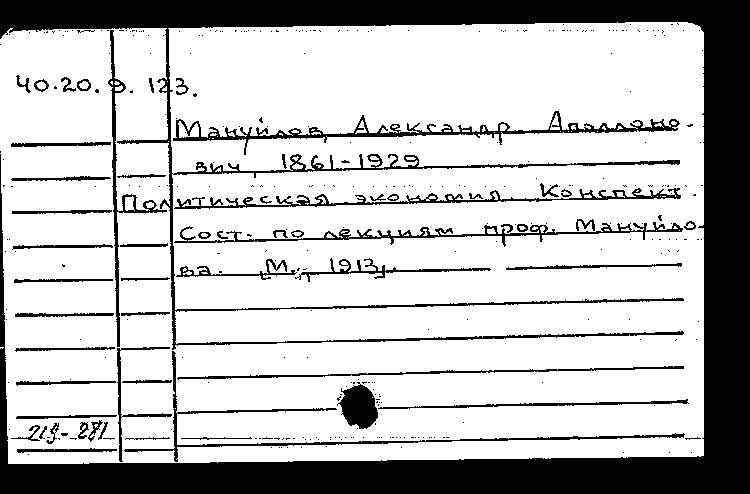 40.20.9.123.
Мануйлов, Александр Аполлоно-
вич, 1861-1929
Политическая экономия. Конспект.
Сост. по лекциям проф. Мануйло-
ва. [М., 1913].
219-281